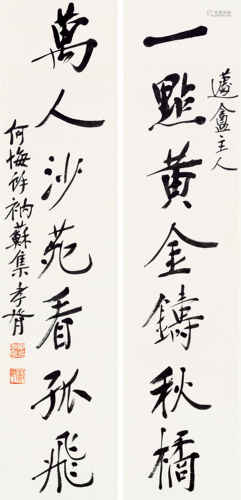 蘧盦主人
一點黃金鑄秋橘
萬人沙苑看孤飛
何悔餘衲蘇集孝胥